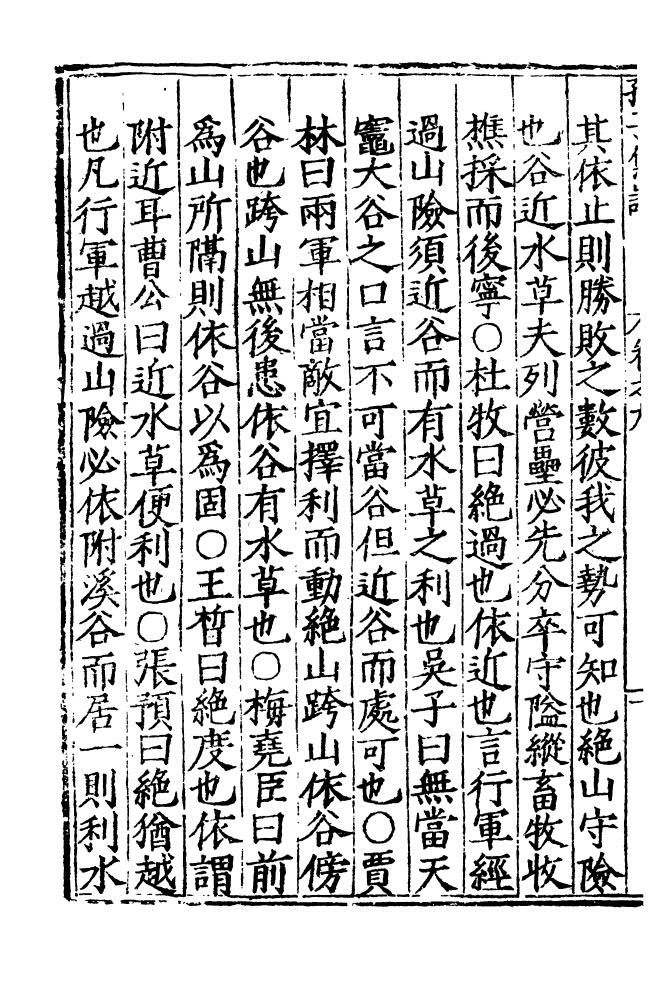 其依止則勝敗之數彼我之勢可知也絶山守險
也谷近水草夫列營壘必先分卒守隘縱畜牧收
樵採而後寧○杜牧曰絶過也依近也言行軍經
過山險須近谷而有水草之利也吳子曰無當天
竈大谷之口言不可當谷但近谷而處可也○賈
林曰兩軍相當敵宜擇利而動絶山跨山依谷傍
谷也跨山無後患依谷有水草也○梅堯臣曰前
爲山所隔則依谷以爲固○王晳曰絶度也依謂
附近耳曹公曰近水草便利也○張預曰絶猶越
也凡行軍越過山險必依附溪谷而居一則利水